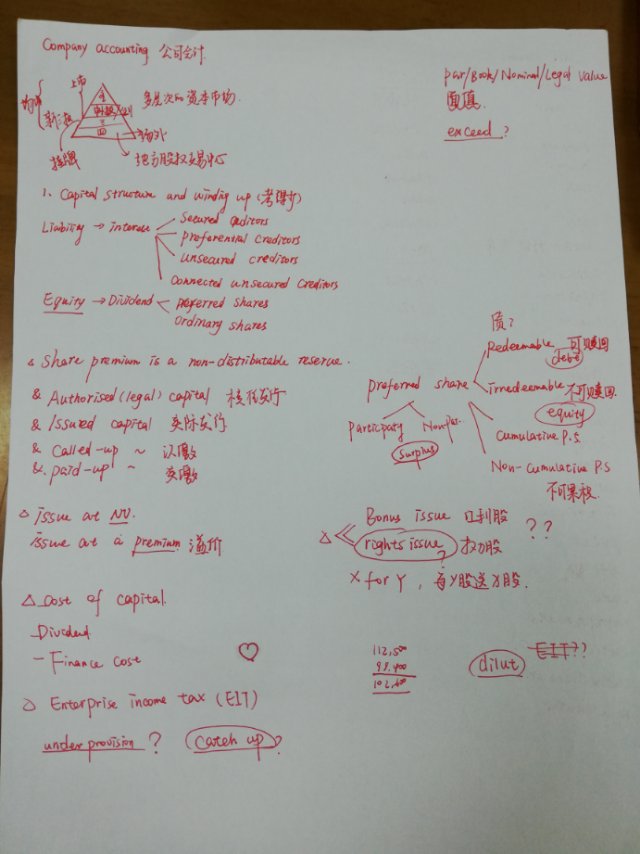 Company accounting 公司会计
上市
新三板
主
创
三
四
场外
挂牌
多层次的资本市场
地方股权交易中心
par/Book/Nominal/Legal value
面值
exceed?
1. Capital structure and winding up (考得少)
Liability → interest
Secured creditors
preferential creditors
unsecured creditors
Connected unsecured creditors
Equity → Dividend
preferred shares
Ordinary shares
Share premium is a non-distributable reserve.
& Authorised (legal) capital 核准发行
& Issued capital 实际发行
& Called-up ~ 认缴
& paid-up ~ 实缴
质?
preferred share
Redeemable 可赎回
debt
irredeemable 不可赎回
equity
Cumulative P.S.
Non-cumulative P.S
不可累积
Participaty Nonpar.
Surplus
△ issue at NV.
issue at a premium 溢价
Bonus issue 红利股 ??
△ rights issue 权力股
?
X for Y, 每Y股送X股.
△ Cost of capital.
-Dividend
- Finance cost
112,500
102,600
dilut
EIT??
△ Enterprise income tax (EIT)
under provision? Catch up?